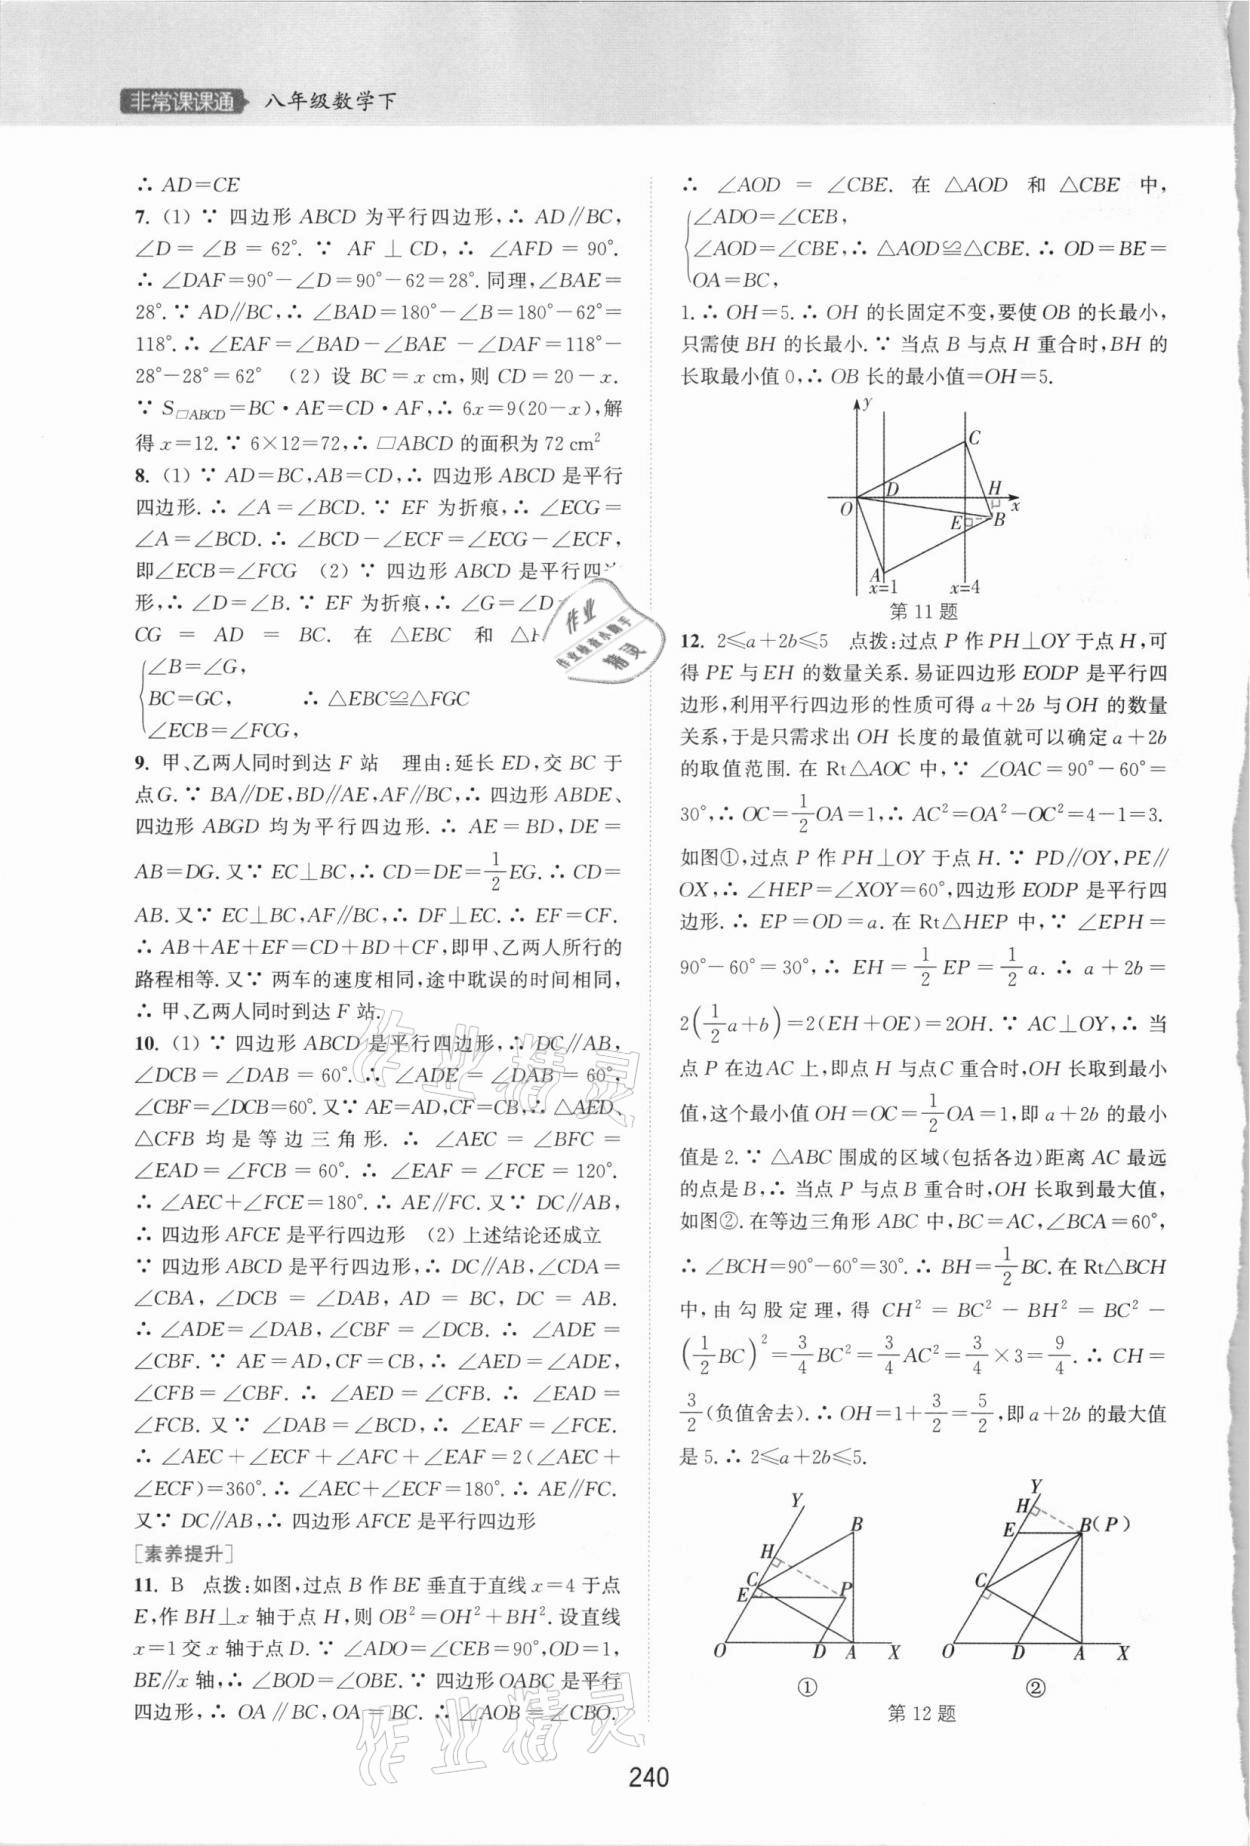 非常课课通 八年级数学下
∴ AD=CE
7. (1) ∵ 四边形 ABCD 为平行四边形,∴ AD∥BC,
∠D=∠B=62°. ∵ AF⊥CD,∴ ∠AFD=90°.
∴ ∠DAF=90°-∠D=90°-62=28°.同理,∠BAE=
28°.∵ AD∥BC,∴ ∠BAD=180°-∠B=180°-62°=
118°.∴ ∠EAF=∠BAD-∠BAE-∠DAF=118°-
28°-28°=62° (2) 设 BC=x cm,则 CD=20-x.
∵ S□ABCD=BC·AE=CD·AF,∴ 6x=9(20-x),解
得 x=12.∵ 6×12=72,∴ □ABCD 的面积为 72 cm²
8. (1) ∵ AD=BC,AB=CD,∴ 四边形 ABCD 是平行
四边形.∴ ∠A=∠BCD.∵ EF 为折痕,∴ ∠ECG=
∠A=∠BCD.∴ ∠BCD-∠ECF=∠ECG-∠ECF,
即∠ECB=∠FCG (2) ∵ 四边形 ABCD 是平行四
形,∴ ∠D=∠B.∵ EF 为折痕,∴ ∠G=∠D
CG=AD=BC. 在 △EBC 和
∠B=∠G,
BC=GC, ∴ △EBC≌△FGC
∠ECB=∠FCG,
9. 甲、乙两人同时到达 F 站 理由:延长 ED,交 BC 于
点G.∵ BA∥DE,BD∥AE,AF∥BC,∴ 四边形 ABDE、
四边形 ABGD 均为平行四边形.∴ AE=BD,DE=
AB=DG.又∵ EC⊥BC,∴ CD=DE=1/2EG.∴ CD=
AB.又∵ EC⊥BC,AF∥BC,∴ DF⊥EC.∴ EF=CF.
∴ AB+AE+EF=CD+BD+CF,即甲、乙两人所行的
路程相等.又∵ 两车的速度相同,途中耽误的时间相同,
∴ 甲、乙两人同时到达 F 站.
10. (1) ∵ 四边形 ABCD 是平行四边形,∴ DC∥AB,
∠DCB=∠DAB=60°.∴ ∠ADE=∠DAB=60°,
∠CBF=∠DCB=60°.又∵ AE=AD,CF=CB,∴ △AED、
△CFB 均是等边三角形.∴ ∠AEC=∠BFC=
∠EAD=∠FCB=60°.∴ ∠EAF=∠FCE=120°.
∴ ∠AEC+∠FCE=180°.∴ AE∥FC.又∵ DC∥AB,
∴ 四边形 AFCE 是平行四边形 (2) 上述结论还成立
∵ 四边形 ABCD 是平行四边形,∴ DC∥AB,∠CDA=
∠CBA,∠DCB=∠DAB,AD=BC,DC=AB.
∴ ∠ADE=∠DAB,∠CBF=∠DCB.∴ ∠ADE=
∠CBF.∵ AE=AD,CF=CB,∴ ∠AED=∠ADE,
∠CFB=∠CBF.∴ ∠AED=∠CFB.∴ ∠EAD=
∠FCB.又∵ ∠DAB=∠BCD,∴ ∠EAF=∠FCE.
∴ ∠AEC+∠ECF+∠AFC+∠EAF=2(∠AEC+
∠ECF)=360°.∴ ∠AEC+∠ECF=180°.∴ AE∥FC.
又∵ DC∥AB,∴ 四边形 AFCE 是平行四边形
[素养提升]
11. B 点拨:如图,过点 B 作 BE 垂直于直线 x=4 于点
E,作 BH⊥x 轴于点 H,则 OB²=OH²+BH².设直线
x=1 交 x 轴于点 D.∵ ∠ADO=∠CEB=90°,OD=1,
BE∥x 轴,∴ ∠BOD=∠OBE.∵ 四边形 OABC 是平行
四边形,∴ OA∥BC,OA=BC.∴ ∠AOB=∠CBO.
∴ ∠AOD=∠CBE. 在 △AOD 和 △CBE 中,
∠ADO=∠CEB,
∠AOD=∠CBE,∴ △AOD≌△CBE.∴ OD=BE=
OA=BC,
1.∴ OH=5.∴ OH 的长固定不变,要使 OB 的长最小,
只需使 BH 的长最小.∵ 当点 B 与点 H 重合时,BH 的
长取最小值 0,∴ OB 长的最小值=OH=5.
y
C
D
H
O
x
E
B
A
x=1
x=4
第 11 题
12. 2≤a+2b≤5 点拨:过点 P 作 PH⊥OY 于点 H,可
得 PE 与 EH 的数量关系.易证四边形 EODP 是平行四
边形,利用平行四边形的性质可得 a+2b 与 OH 的数量
关系,于是只需求出 OH 长度的最值就可以确定 a+2b
的取值范围.在 Rt△AOC 中,∵ ∠OAC=90°-60°=
30°,∴ OC=1/2OA=1,∴ AC²=OA²-OC²=4-1=3.
如图①,过点 P 作 PH⊥OY 于点 H.∵ PD∥OY,PE∥
OX,∴ ∠HEP=∠XOY=60°,四边形 EODP 是平行四
边形.∴ EP=OD=a.在 Rt△HEP 中,∵ ∠EPH=
90°-60°=30°,∴ EH=1/2EP=1/2a.∴ a+2b=
2(1/2a+b)=2(EH+OE)=2OH.∵ AC⊥OY,∴ 当
点 P 在边AC 上,即点 H 与点C 重合时,OH 长取到最小
值,这个最小值 OH=OC=1/2OA=1,即 a+2b 的最小
值是 2.∵ △ABC 围成的区域(包括各边)距离 AC 最远
的点是 B,∴ 当点 P 与点 B 重合时,OH 长取到最大值,
如图②.在等边三角形 ABC 中,BC=AC,∠BCA=60°,
∴ ∠BCH=90°-60°=30°.∴ BH=1/2BC.在 Rt△BCH
中,由勾股定理,得 CH²=BC²-BH²=BC²-
(1/2BC)²=3/4BC²=3/4AC²=3/4×3=9/4.∴ CH=
3/2(负值舍去).∴ OH=1+3/2=5/2,即 a+2b 的最大值
是 5.∴ 2≤a+2b≤5.
Y
B
H
C
E
P
O
D
A
X
①
Y
H
E
B(P)
C
O
D
A
X
②
第 12 题
作业
作业检查小助手
精灵
作业精灵
作业精灵
240